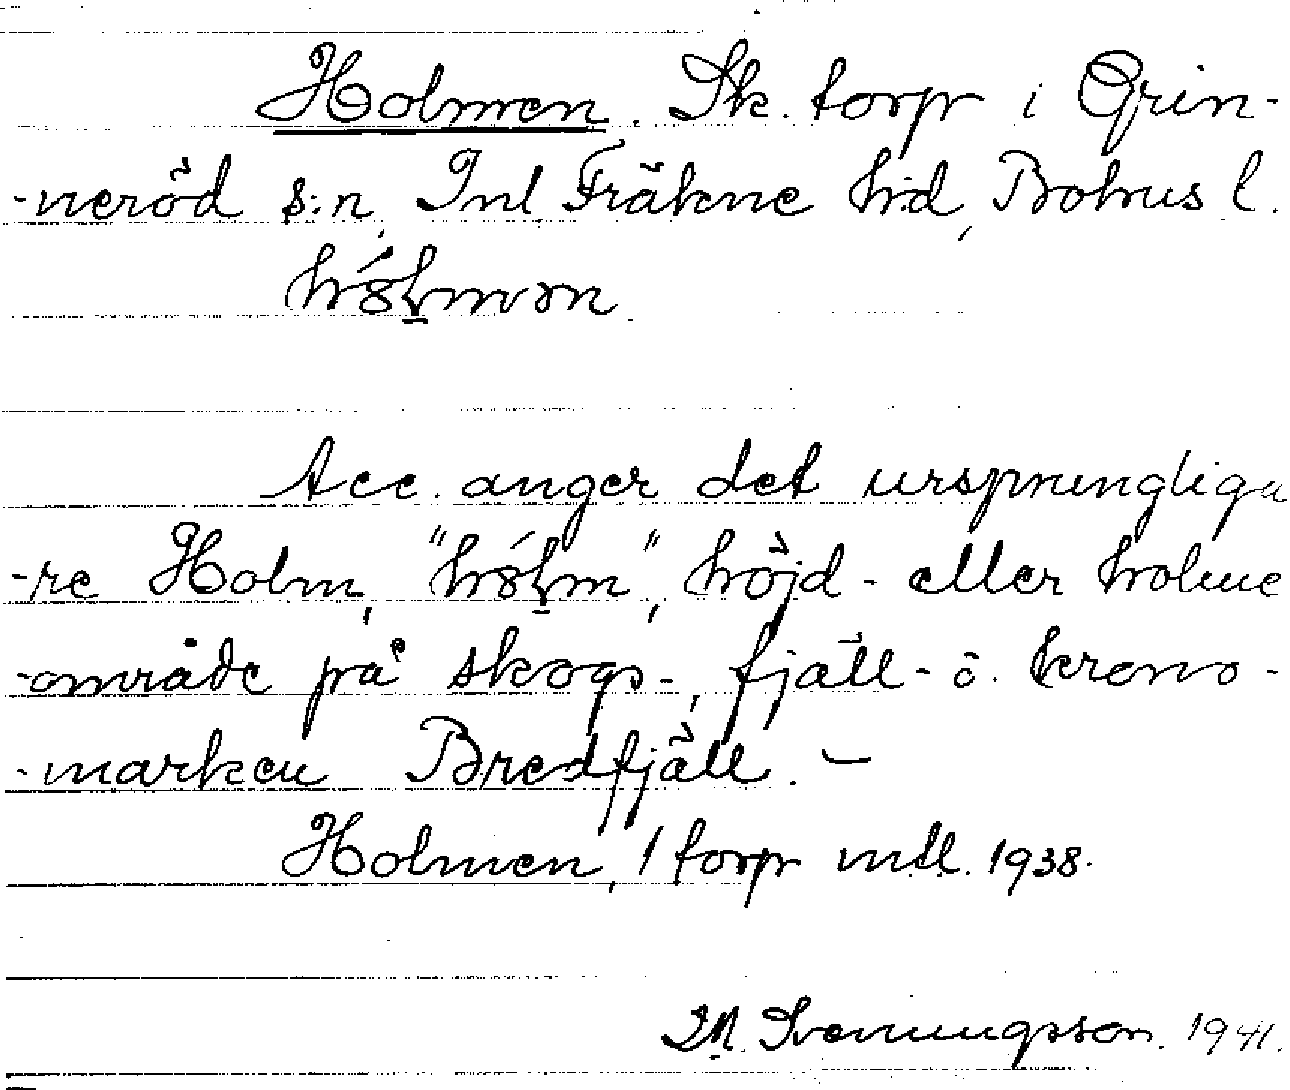 Holmen. Sk. torp i Grin-
-neröd s:n, Inl Fräkne hd, Bohus l.
hó̤l̠mən.
Acc. anger det ursprungliga
-re Holm, "hól̠m", höjd- eller holme
-område på skogs-, fjäll- o. krono-
-marken Bredfjäll. –
Holmen, 1 torp mtl. 1938.
M. Svenungsson. 1941.